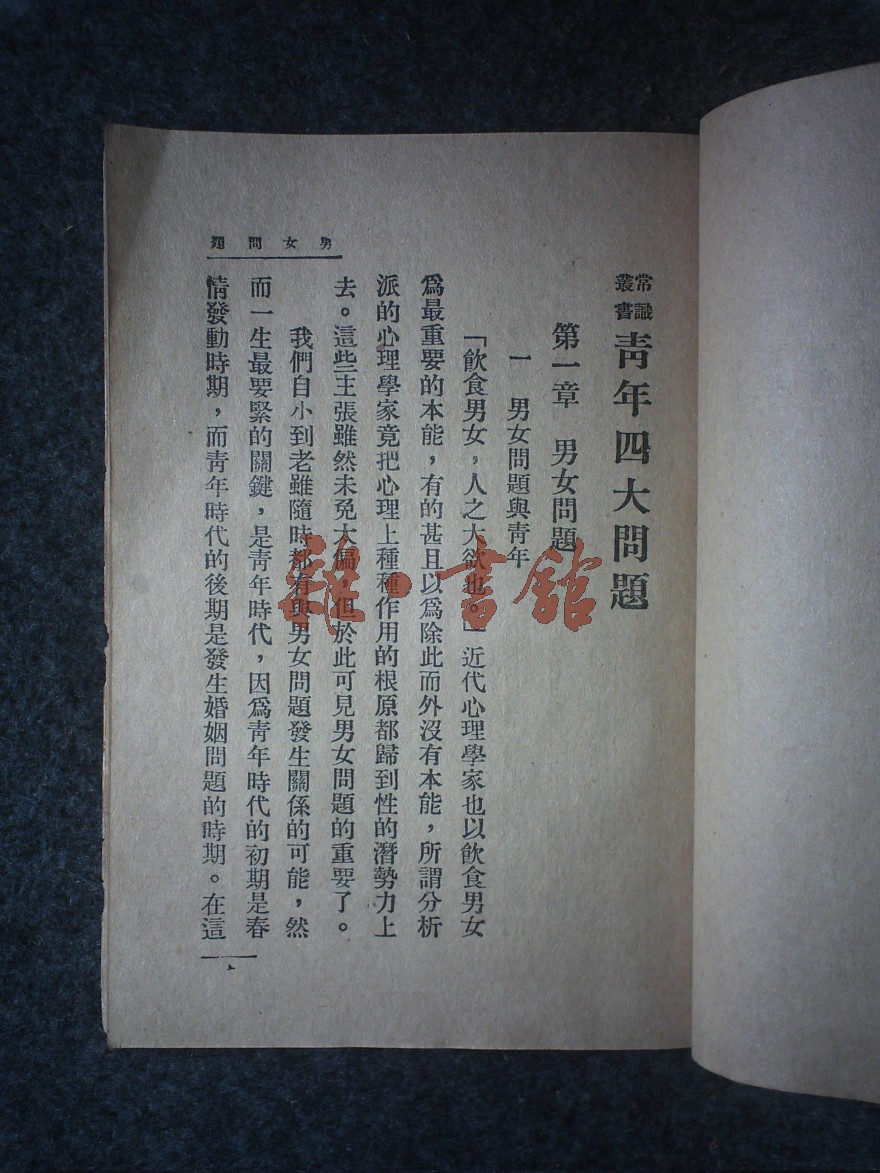 常識
叢書
青年四大問題
第一章　男女問題
一　男女問題與青年
「飲食男女，人之大欲也。」近代心理學家也以飲食男女
爲最重要的本能，有的甚且以爲除此而外沒有本能，所謂分析
派的心理學家竟把心理上種種作用的根原都歸到性的潛勢力上
去。這些主張雖然未免太偏，但於此可見男女問題的重要了。
我們自小到老雖隨時都有與男女問題發生關係的可能，然
而一生最要緊的關鍵，是青年時代，因爲青年時代的初期是春
情發動時期，而青年時代的後期是發生婚姻問題的時期。在這
男女問題
雜·書館